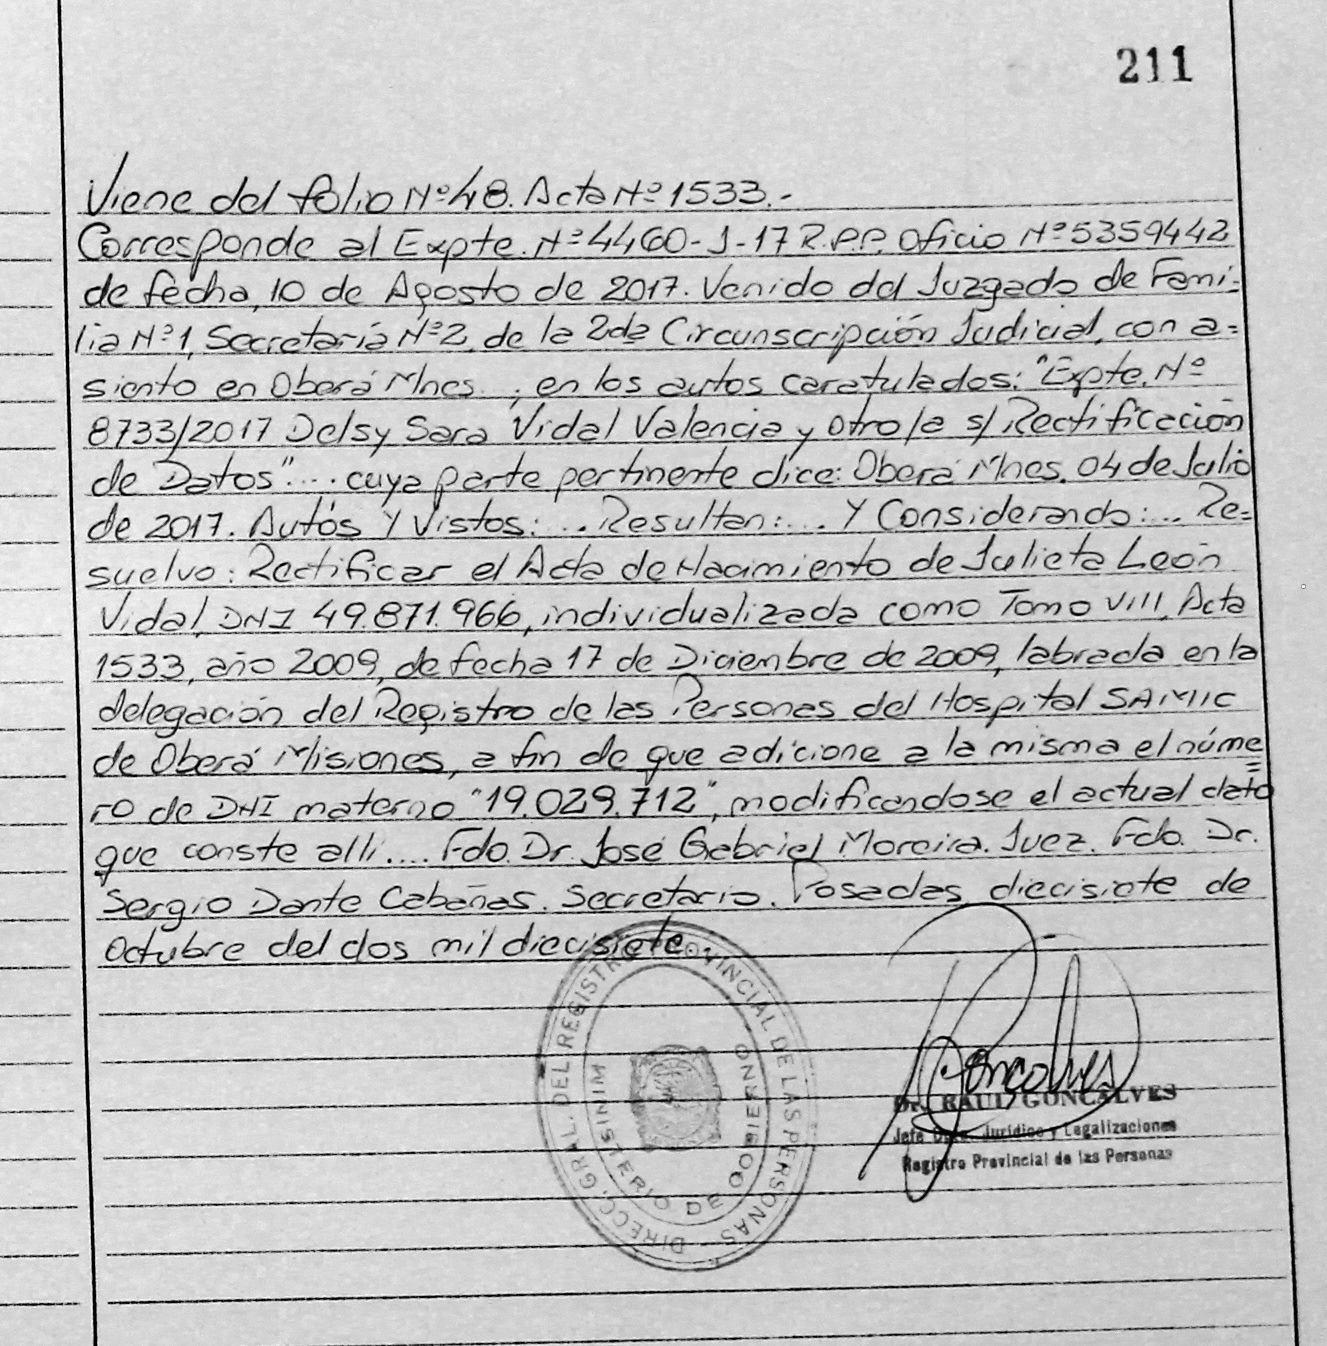 211
Viene del folio Nº 48. Acta Nº 1533.-
Corresponde al Expte. Nº 4460-J-17 R.P.P. Oficio Nº 5359442
de fecha, 10 de Agosto de 2017. Venido del Juzgado de Fami=
lia Nº 1, Secretaría Nº 2, de la 2da Circunscripción Judicial, con a=
siento en Oberá Mnes., en los autos caratulados: "Expte. Nº
8733/2017 Delsy Sara Vidal Valencia y otro/a s/ Rectificación
de Datos".... cuya parte pertinente dice: Oberá Mnes. 04 de Julio
de 2017. Autós Y Vistos:... Resultan:... Y Considerando:... Re=
suelvo: Rectificar el Acta de Nacimiento de Julieta León
Vidal, DNI 49.871.966, individualizada como Tomo VIII, Acta
1533, año 2009, de fecha 17 de Diciembre de 2009, labrada en la
delegación del Registro de las Personas del Hospital SAMIC
de Oberá Misiones, a fin de que adicione a la misma el núme=
ro de DNI materno "19.029.712", modificandose el actual dato
que conste allí.... Fdo. Dr. José Gabriel Moreira. Juez. Fdo. Dr.
Sergio Dante Cabañas. Secretario. Posadas diecisiete de
Octubre del dos mil diecisiete.
DIRECC. GRAL. DEL REGISTRO PROVINCIAL DE LAS PERSONAS
MINISTERIO DE GOBIERNO
Goncalves
Dr. RAUL GONCALVES
Jefe Dpto. Jurídico y Legalizaciones
Registro Provincial de las Personas